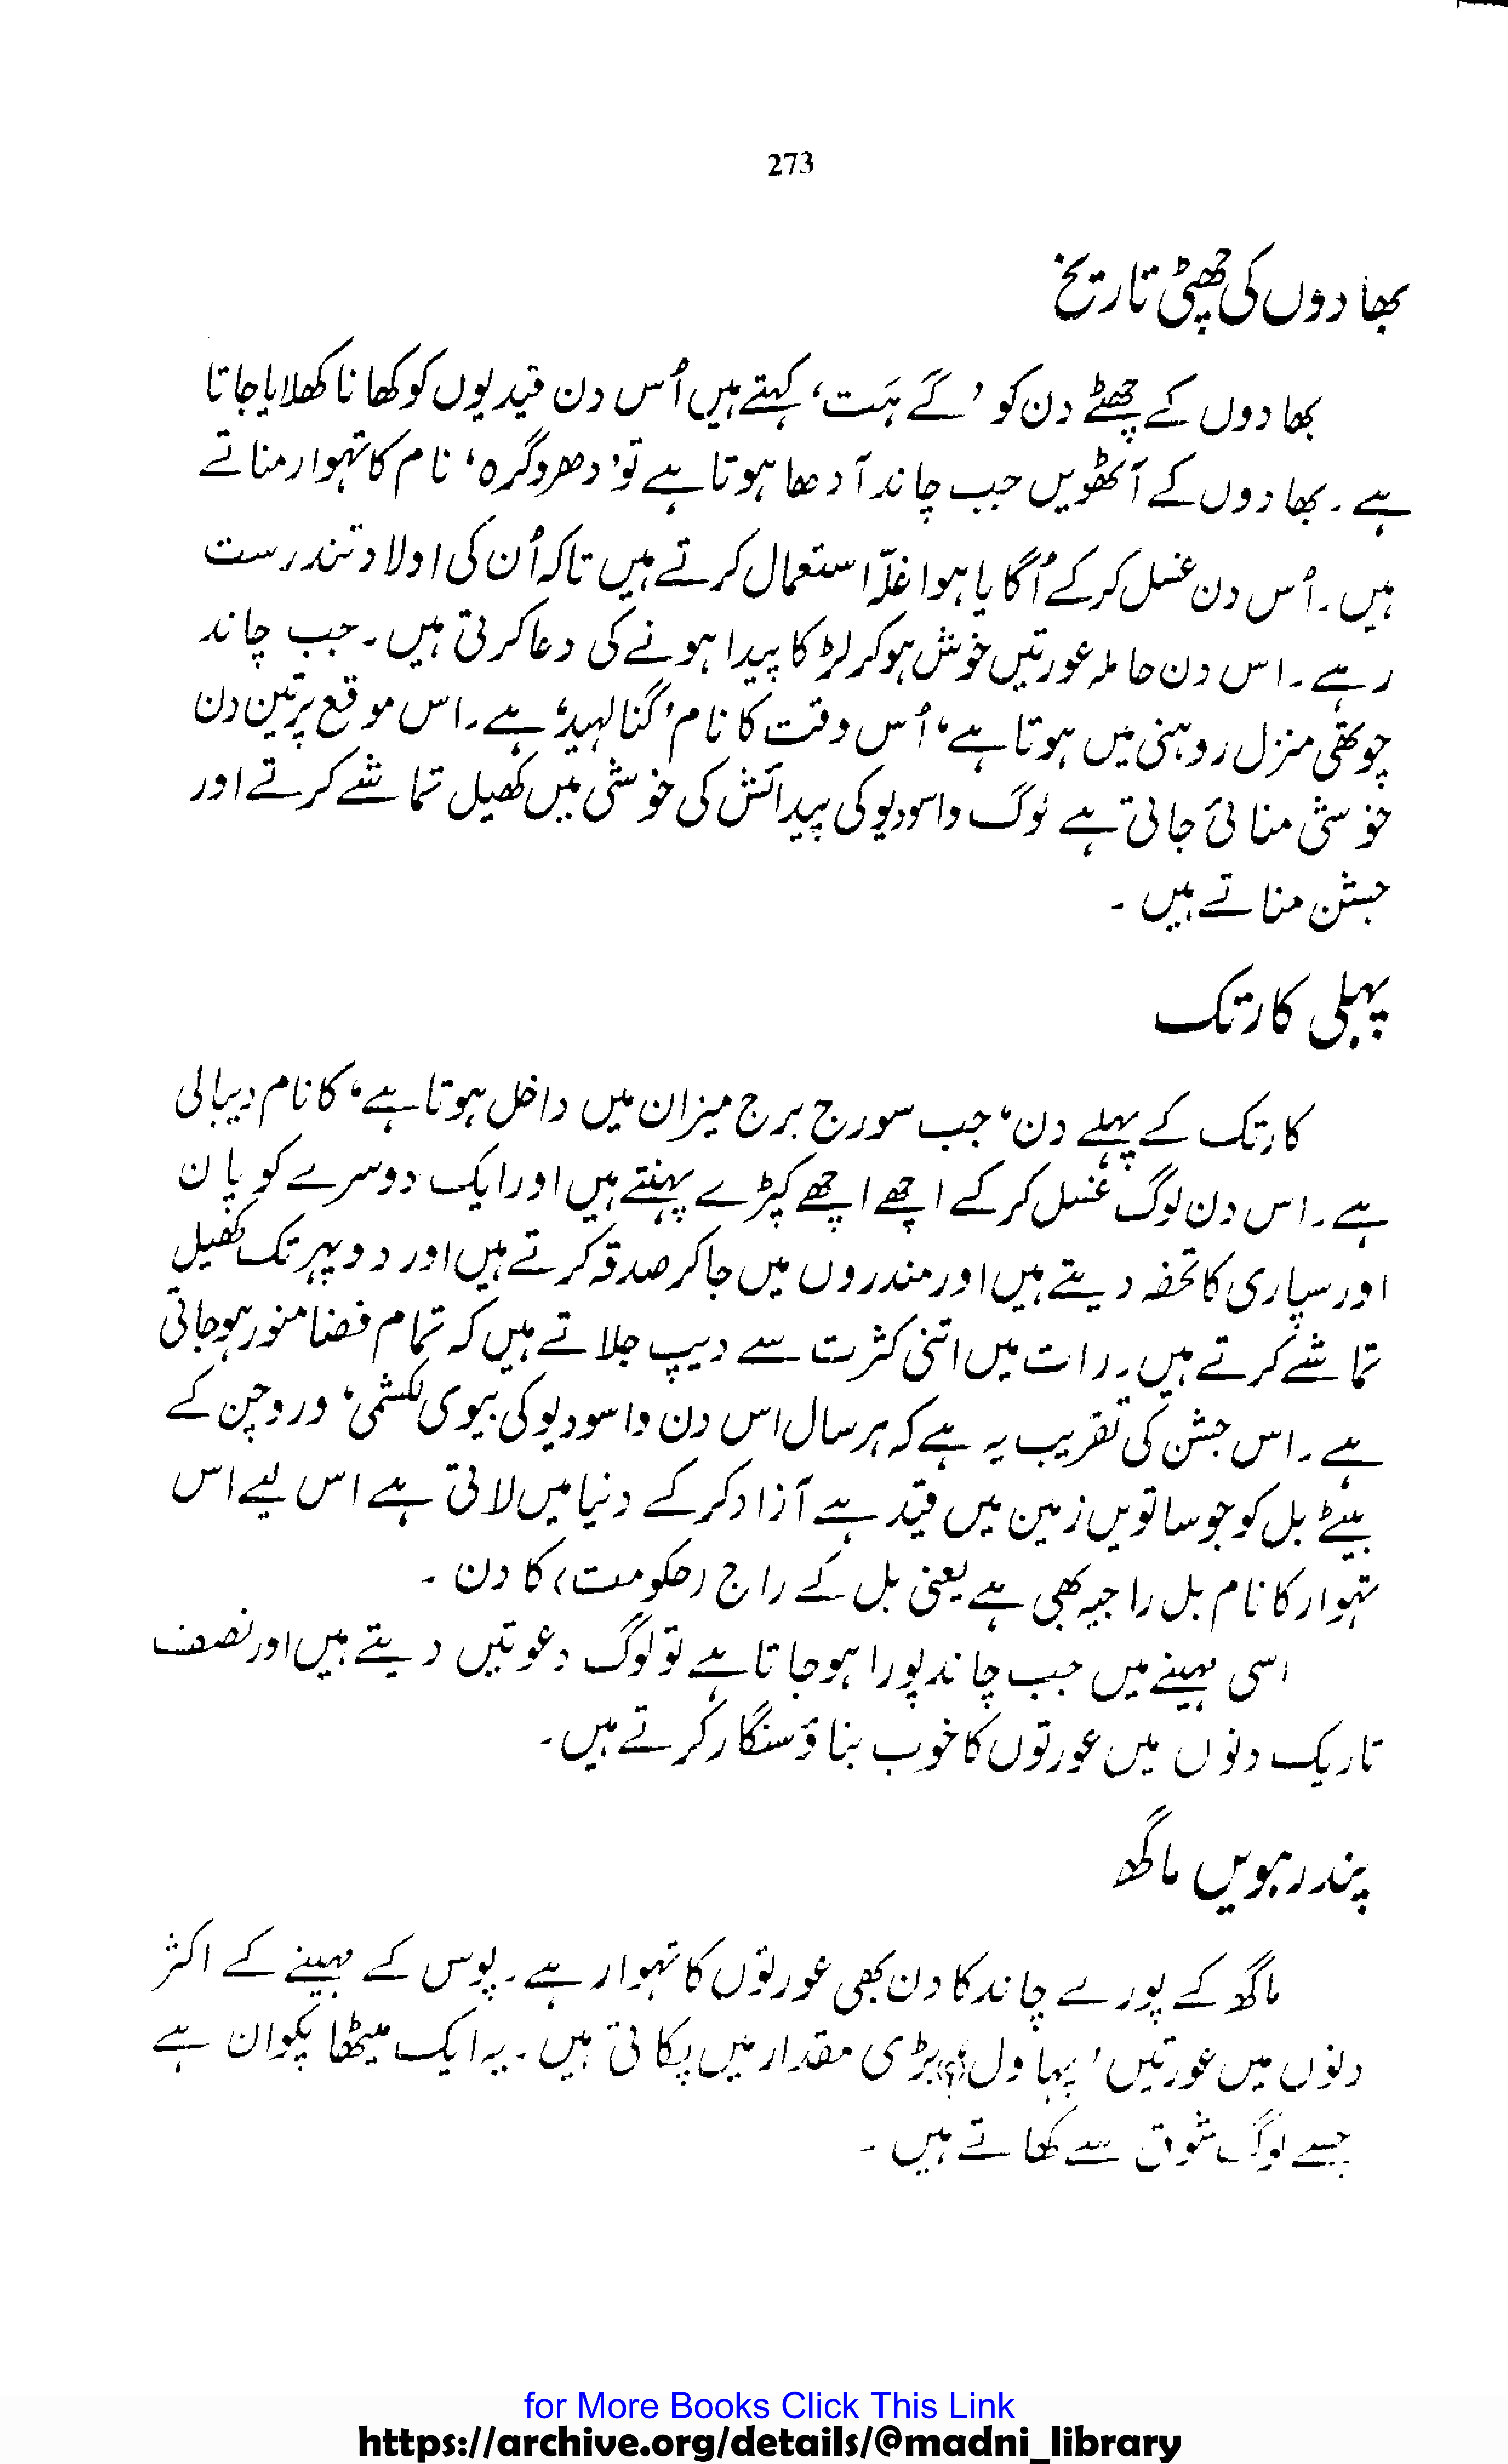 273
بھادوں کی چھٹی تاریخ
بھادوں کے چھٹے دن کو ’گَے ہَت‘ کہتے ہیں اُس دن قیدیوں کو کھانا کھلایا جاتا
ہے۔ بھادوں کے آٹھویں جب چاند آدھا ہوتا ہے تو ’دھروگرہ‘ نام کا تہوار مناتے
ہیں۔ اُس دن غسل کر کے اُگایا ہوا غلّہ استعمال کرتے ہیں تاکہ اُن کی اولاد تندرست
رہے۔ اس دن حاملہ عورتیں خوش ہو کر لڑکا پیدا ہونے کی دعا کرتی ہیں۔ جب چاند
چوتھی منزل روہنی میں ہوتا ہے، اُس وقت کا نام ’گنالہید‘ ہے۔ اس موقع پر تین دن
خوشی منائی جاتی ہے لوگ واسودیو کی پیدائش کی خوشی میں کھیل تماشے کرتے اور
جشن مناتے ہیں۔
پہلی کارتک
کارتک کے پہلے دن، جب سورج برج میزان میں داخل ہوتا ہے، کا نام دیبالی
ہے۔ اس دن لوگ غسل کر کے اچھے اچھے کپڑے پہنتے ہیں اور ایک دوسرے کو پان
اور سپاری کا تحفہ دیتے ہیں اور مندروں میں جاکر صدقہ کرتے ہیں اور دوپہر تک کھیل
تماشے کرتے ہیں۔ رات میں اتنی کثرت سے دیپ جلاتے ہیں کہ تمام فضا منور ہوجاتی
ہے۔ اس جشن کی تقریب یہ ہے کہ ہر سال اس دن واسودیو کی بیوی لکشمی، وروچن کے
بیٹے بل کو جو ساتویں زمین میں قید ہے آزاد کر کے دنیا میں لاتی ہے اس لیے اس
تہوار کا نام بل راجیہ بھی ہے یعنی بل کے راج (حکومت) کا دن۔
اسی مہینے میں جب چاند پورا ہوجاتا ہے تو لوگ دعوتیں دیتے ہیں اور نصف
تاریک دنوں میں عورتوں کا خوب بناؤ سنگار کرتے ہیں۔
پندرہویں ماگھ
ماگھ کے پورے چاند کا دن بھی عورتوں کا تہوار ہے۔ پوس کے مہینے کے اکثر
دنوں میں عورتیں ’پہاول‘(؟) بڑی مقدار میں پکاتی ہیں۔ یہ ایک میٹھا پکوان ہے
جسے لوگ شوق سے کھاتے ہیں۔
for More Books Click This Link
https://archive.org/details/@madni_library